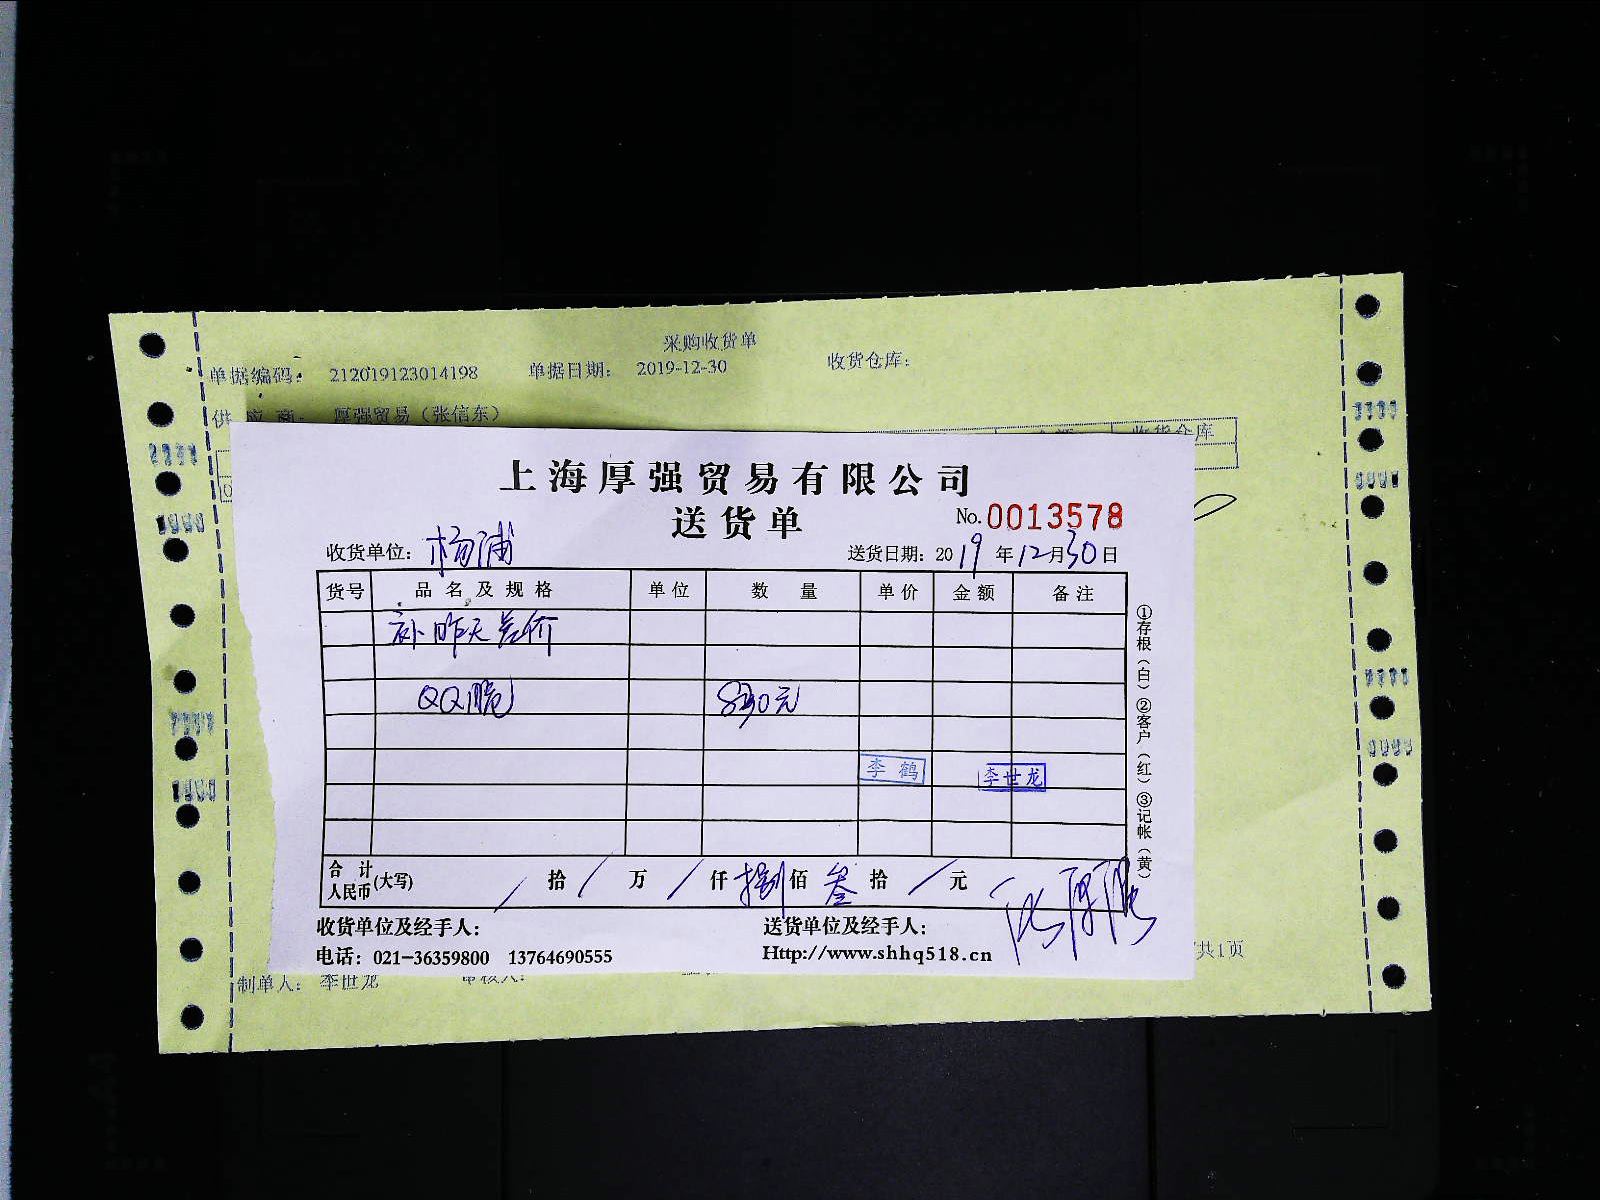 采购收货单
单据编码： 212019123014198 单据日期： 2019-12-30 收货仓库：
供应商： 厚强贸易（张信东）
收货仓库
上海厚强贸易有限公司
送货单 No.0013578
收货单位： 杨浦 送货日期：2019年12月30日
货号 品名及规格 单位 数量 单价 金额 备注
补昨天差价
QQ脆 830元
李鹤 李世龙
合计人民币(大写) / 拾 / 万 / 仟 捌 佰 叁 拾 / 元
收货单位及经手人： 送货单位及经手人：
电话：021-36359800 13764690555 Http://www.shhq518.cn
①存根（白）②客户（红）③记帐（黄）
共1页
制单人： 李世龙 审核人：